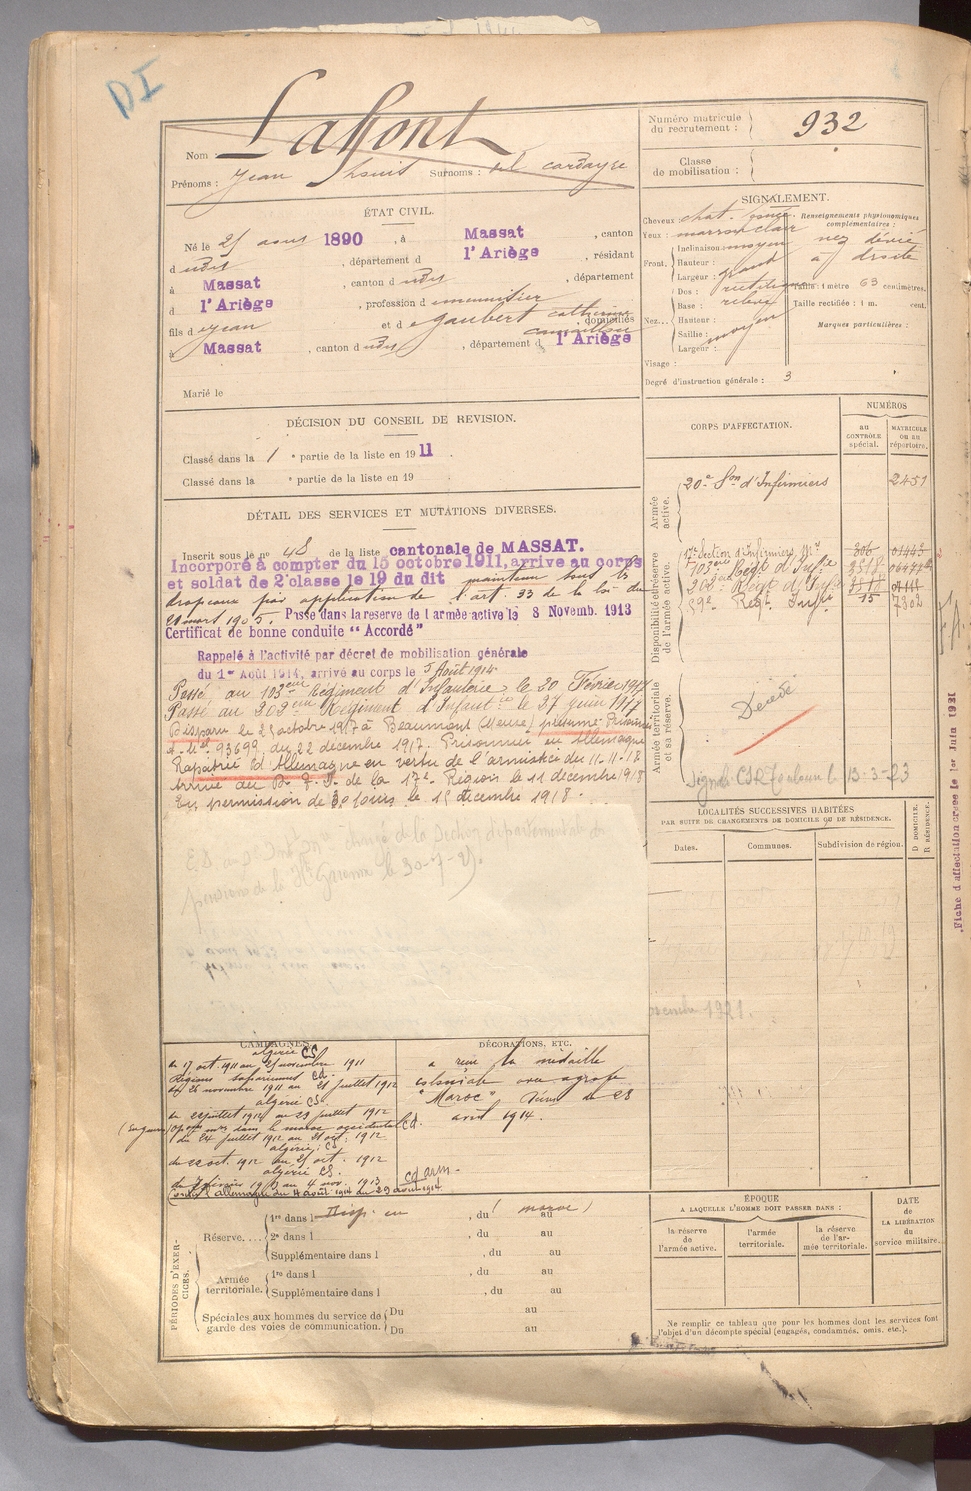 DI
Nom Lafont
Prénoms : Jean Louis Surnoms : del cardayre
Numéro matricule du recrutement : 932
Classe de mobilisation :
ÉTAT CIVIL.
Né le 25 aout 1890, à Massat, canton
d udit, département d l'Ariège, résidant
à Massat, canton d udit, département
d l'Ariège, profession d e menuisier
fils d e Jean et d e Gaubert Catherine, domiciliés
à Massat, canton d udit, département d l'Ariège
Marié le
SIGNALEMENT.
Cheveux : chat. foncé
Yeux : marron clair
Front, Inclinaison : moyen
Hauteur :
Largeur : grand
Nez... Dos : rectiligne
Base : relevé
Hauteur :
Saillie : moyen
Largeur :
Visage :
Renseignements physionomiques complémentaires :
nez dévié
à droite
Taille : 1 mètre 63 centimètres.
Taille rectifiée : 1 m. cent.
Marques particulières :
Degré d'instruction générale : 3
DÉCISION DU CONSEIL DE REVISION.
Classé dans la 1 e partie de la liste en 1911.
Classé dans la e partie de la liste en 19
DÉTAIL DES SERVICES ET MUTATIONS DIVERSES.
Inscrit sous le no 48 de la liste cantonale de MASSAT.
Incorporé à compter du 15 octobre 1911, arrive au corps
et soldat de 2e classe le 19 du dit maintenu sous les
drapeaux par application de l'art. 33 de la loi du
21 mars 1905. Passé dans la reserve de l armée active le 8 Novemb. 1913
Certificat de bonne conduite "Accordé"
Rappelé à l'activité par décret de mobilisation générale
du 1er Août 1914, arrivé au corps le 5 Août 1914
Passé au 103eme Régiment d'Infanterie le 20 Février 1917
Passé au 202eme Régiment d'Infantie le 27 juin 1917
Disparu le 25 octobre 1917 à Beaumont (Meuse) présumé Prisonnier
93699 du 22 décembre 1917. Prisonnier en Allemagne
Rapatrié d'Allemagne en vertu de l'armistice du 11.11.18
Arrivé au D. T. I. de la 17e Région le 11 décembre 1918
En permission de 30 jours le 15 décembre 1918.
chargé de la Section départementale des
pensions de la Hte Garonne le 30-7-25.
CORPS D'AFFECTATION.
NUMÉROS
au CONTRÔLE spécial.
MATRICULE ou au répertoire.
Armée active.
20e Son d'Infirmiers 2451
Disponibilité et réserve de l'armée active.
17e Section d'Infirmiers Mre 306 01443
103eme Régt d'Infie
202eme Régt d'Infie
59e Régt Infie 15 7302
Armée territoriale et sa réserve.
Décédé
signalé CSR Toulouse le 13-3-23
Fiche d'affectation créée le 1er Juin 1921
LOCALITÉS SUCCESSIVES HABITÉES
PAR SUITE DE CHANGEMENTS DE DOMICILE OU DE RÉSIDENCE.
Dates.
Communes.
Subdivision de région.
D DOMICILE.
R RÉSIDENCE.
1921.
CAMPAGNES.
algérie CS
du 17 oct. 1911 au 25 novembre 1911
Régions sahariennes Cd
du 26 novembre 1911 au 21 juillet 1912
algérie CS.
du 22 juillet 1912 au 23 juillet 1912
(En guerre) Opons mres dans le maroc occidental Cd.
du 24 juillet 1912 au 21 oct. 1912
algérie; CS
du 22 oct. 1912 au 25 oct. 1912
algérie CS.
du 7 février 1913 au 4 nov. 1913
Contre l'allemagne du 4 août 1914 au 29 août 1914
Cd arm.
DÉCORATIONS, ETC.
a reçu la médaille
coloniale avec agrafe
"Maroc" Décision du 28
avril 1914.
PÉRIODES D'EXERCICES.
Réserve.... 1re dans l Disp. en , du ( maroc ) au
2e dans l , du au
Supplémentaire dans l , du au
Armée territoriale. 1re dans l , du au
Supplémentaire dans l , du au
Spéciales aux hommes du service de garde des voies de communication. Du au
Du au
ÉPOQUE
A LAQUELLE L'HOMME DOIT PASSER DANS :
la réserve de l'armée active.
l'armée territoriale.
la réserve de l'armée territoriale.
DATE de LA LIBÉRATION du service militaire.
Ne remplir ce tableau que pour les hommes dont les services font
l'objet d'un décompte spécial (engagés, condamnés, omis, etc.).